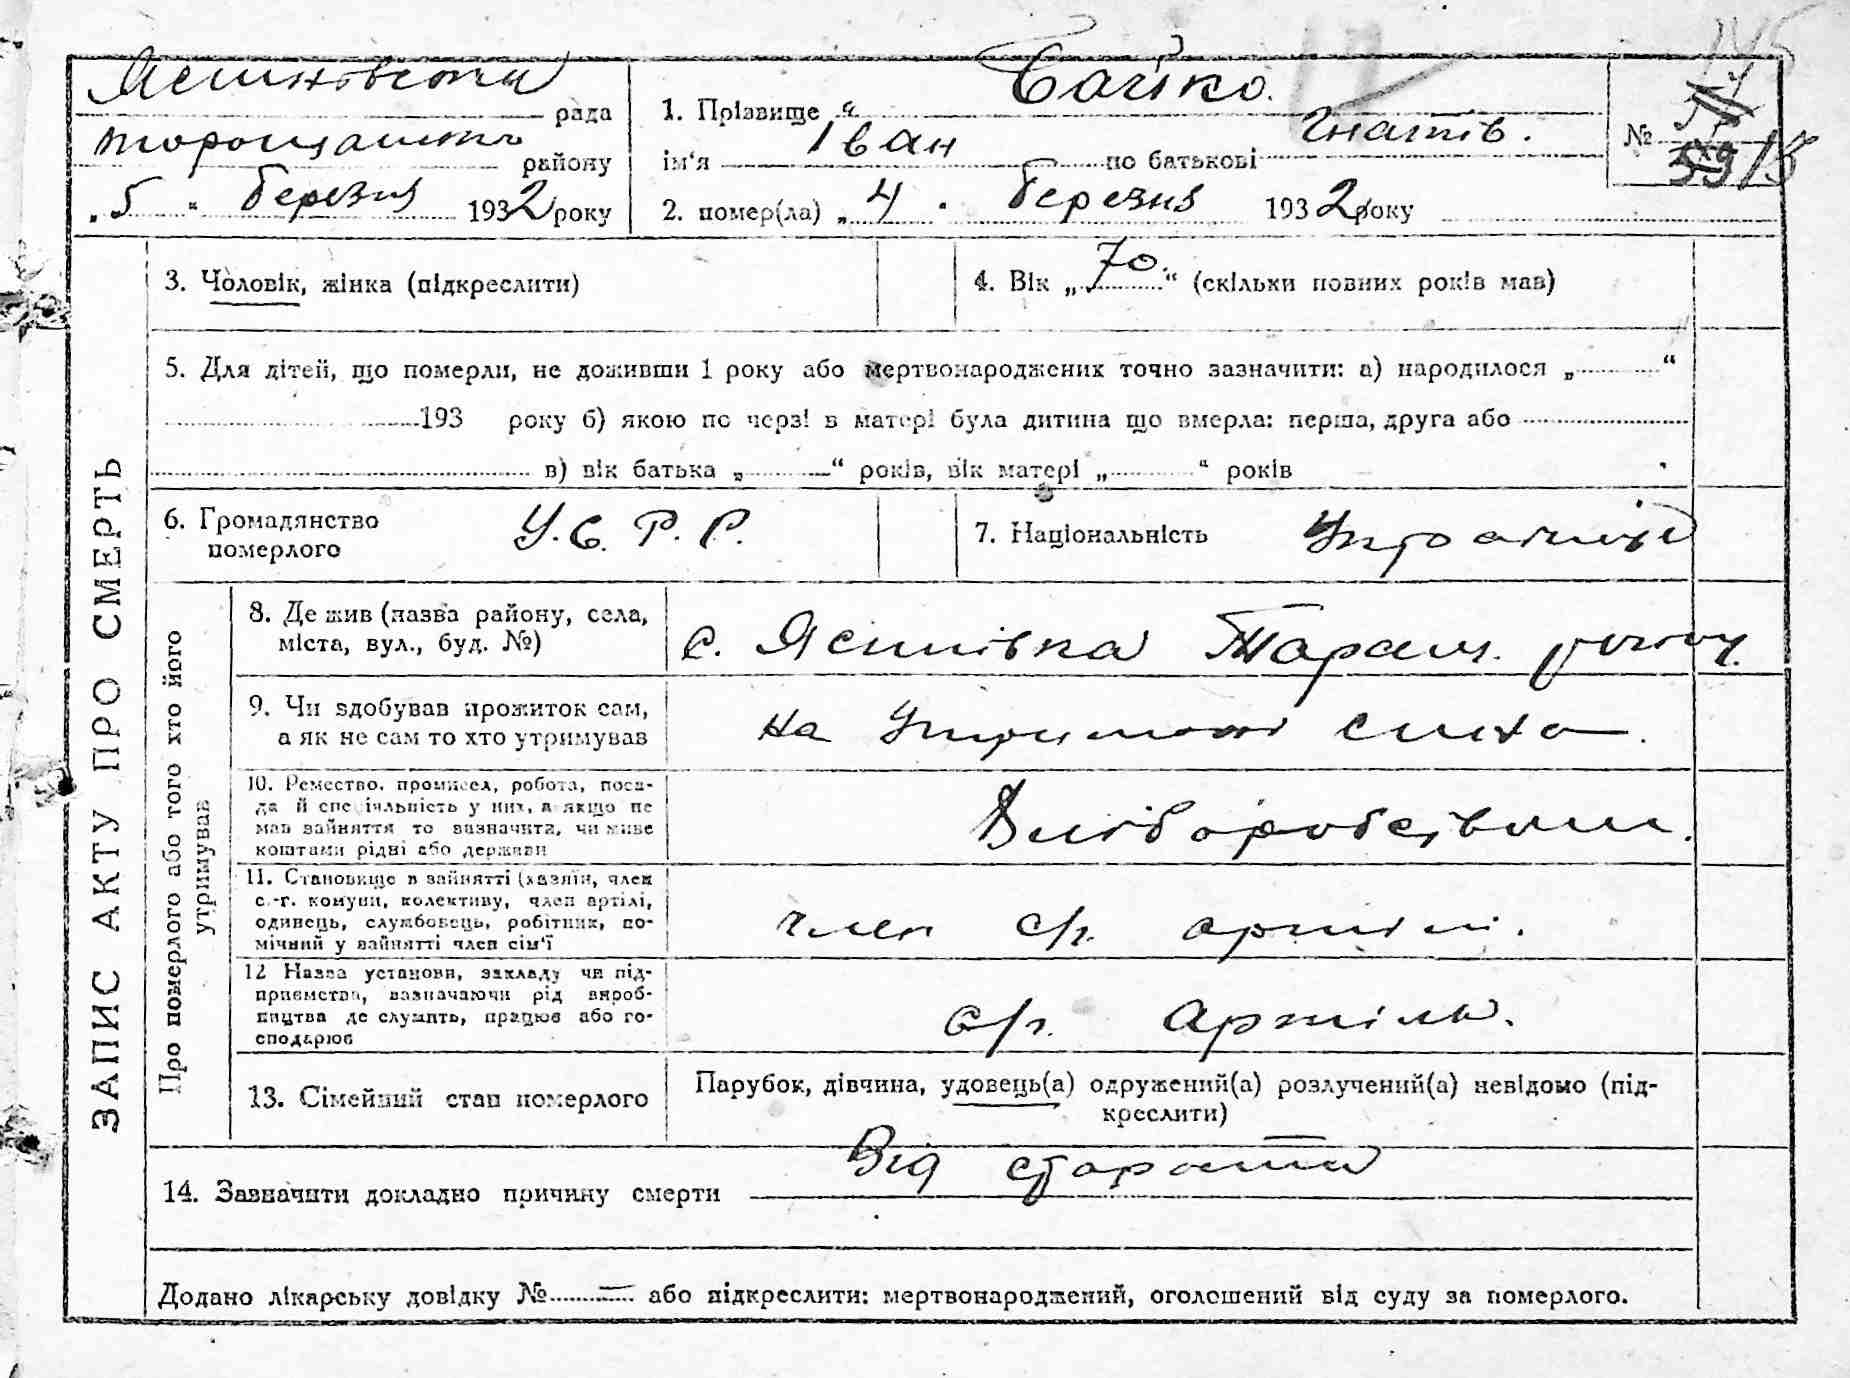 Ясиновська рада
района
„5“ березня 1932 року
1. Прізвище „ Бойко.
ім'я Іван по батькові Гнатів.
2. помер(ла) „4“ березня 1932 року
№ 59 15
ЗАПИС АКТУ ПРО СМЕРТЬ
3. Чоловік, жінка (підкреслити)
4. Вік „70.“ (скільки повних років мав)
5. Для дітей, що померли, не доживши 1 року або мертвонароджених точно зазначити: а) народилося „ “
193 року б) якою по черзі в матері була дитина що вмерла: перша, друга або
в) вік батька „ “ років, вік матері „ “ років
6. Громадянство
померлого У.С.Р.Р.
7. Національність Українець
Про померлого або того хто його
утримував
8. Де жив (назва району, села,
міста, вул., буд. №) с. Ясинівка Таращ. району.
9. Чи здобував прожиток сам,
а як не сам то хто утримував на утриманні сина.
10. Ремество, промисел, робота, поса-
да й спеціяльність у них, а якщо не
мав зайняття то зазначити, чи живе
коштами рідні або держави Хліборобством.
11. Становище в зайнятті (хазяїн, член
с.-г. комуни, колективу, член артілі,
одинець, службовець, робітник, по-
мічний у зайнятті член сім'ї член с/г. артілі.
12 Назва установи, закладу чи під-
приємства, зазначаючи рід вироб-
ництва де служить, працює або го-
сподарює с/г. Артіль.
13. Сімейний стан померлого
Парубок, дівчина, удовець(а) одружений(а) розлучений(а) невідомо (під-
креслити)
14. Зазначити докладно причину смерти Від старости
Додано лікарську довідку № — або підкреслити: мертвонароджений, оголошений від суду за померлого.